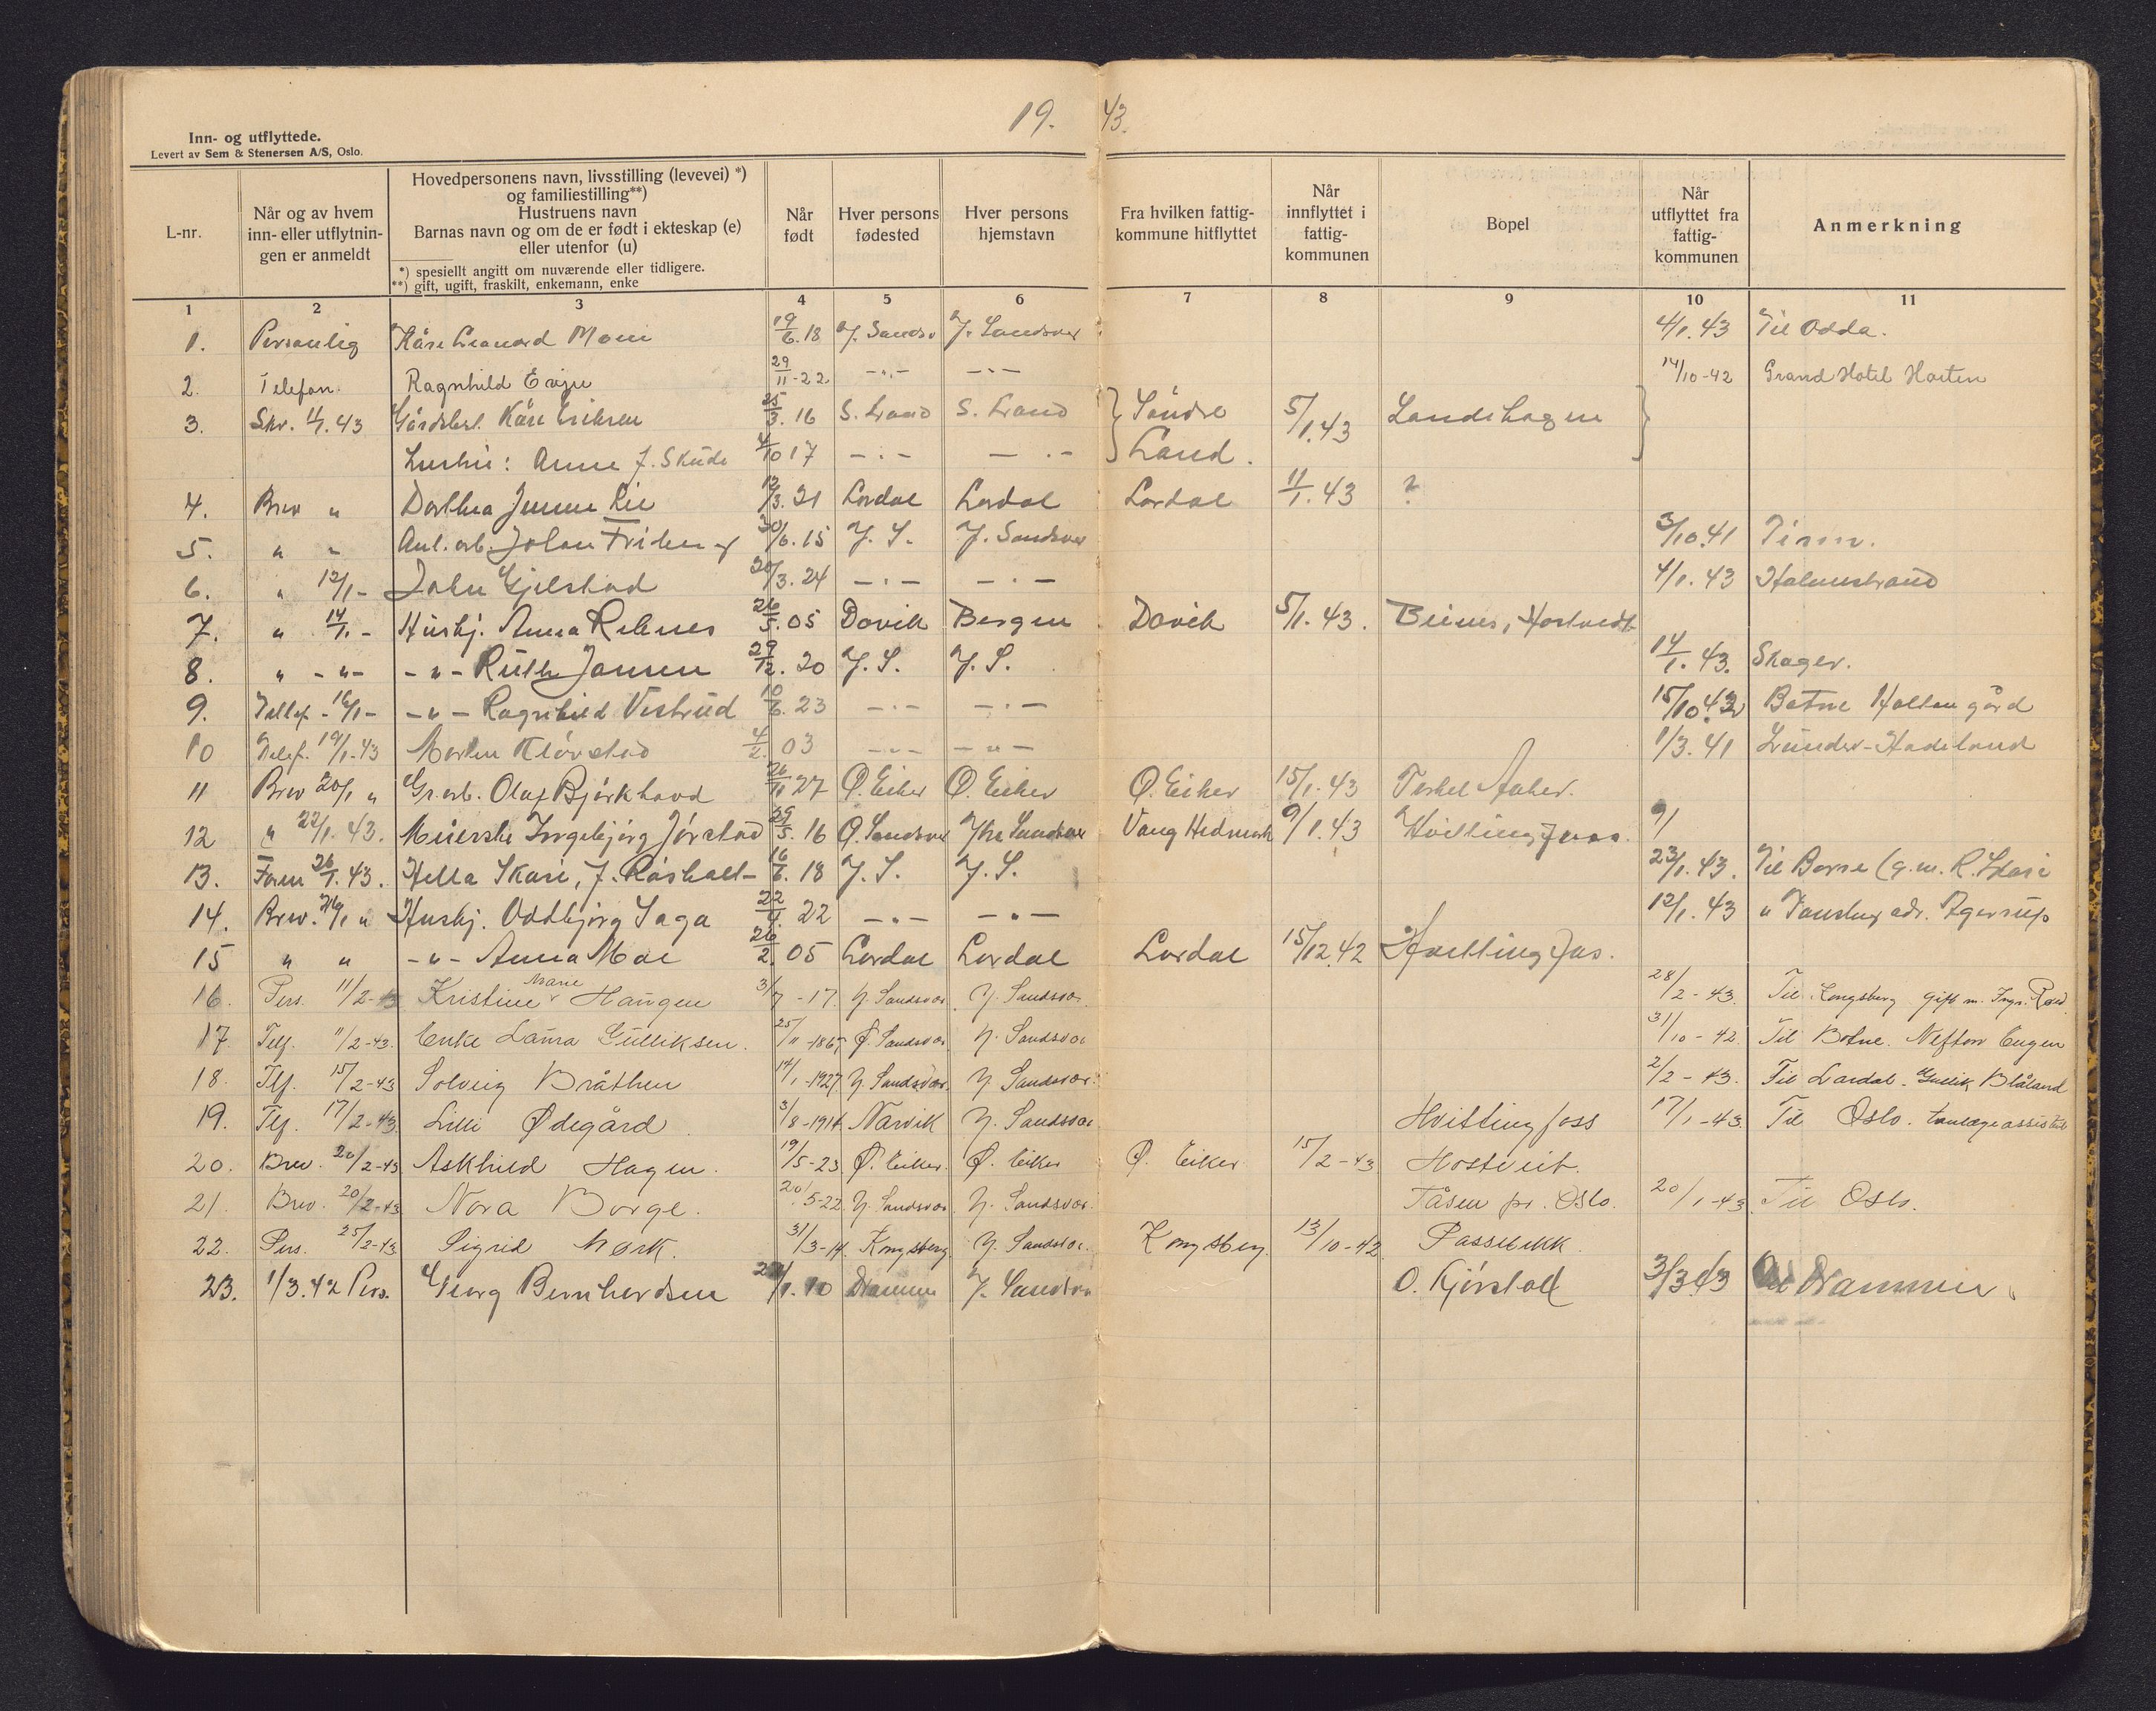 19. 43.
Inn- og utflyttede.
Levert av Sem & Stenersen A/S, Oslo.
L-nr.
Når og av hvem
inn- eller utflytnin-
gen er anmeldt
Hovedpersonens navn, livsstilling (levevei) *)
og familiestilling**)
Hustruens navn
Barnas navn og om de er født i ekteskap (e)
eller utenfor (u)
*) spesiellt angitt om nuværende eller tidligere.
**) gift, ugift, fraskilt, enkemann, enke
Når
født
Hver persons
fødested
Hver persons
hjemstavn
Fra hvilken fattig-
kommune hitflyttet
Når
innflyttet i
fattig-
kommunen
Bopel
Når
utflyttet fra
fattig-
kommunen
Anmerkning
1 2 3 4 5 6 7 8 9 10 11
1. Personlig Kåre Leonard Moen 19/6.18 Y. Sandsv Y. Sandsver 4/1.43 Til Odda.
2. Telefon. Ragnhild 29/11-22 -"- -"- 14/10-42 Grand Hotel Horten
3. Skr. 4/1.43 Gårdsbest. Kåre Eriksen 25/3.16 S. Land S. Land Søndre 5/1.43 Landshagen
hustru: Anne f. Skude 4/10 17 -"- -"- Land.
4. Brev " Dorthea Lie 12/3.21 Lardal Lardal Lardal 11/1.43 ?
5. " " Anl. arb. Johan 30/6.15 Y. S. Y. Sandsver 3/10.41 Tinn.
6. " 12/1 - John Gjelstad 20/3.24 -"- -"- 4/1.43 Holmestrand
7. " 14/1 - Hushj. Anna 26/5.05 Davik Bergen Davik 5/1.43. Hostvedt
8. " -"- -"- Ruth Jansen 29/12.20 Y. S. Y. S. 14/1.43. Skoger.
9. Tellef - 16/1 - -"- Ragnhild Vestrud 10/6.23 -"- -"- 15/10.42 Botne Holtan gård
10 Telef. 19/1-43 Morten Kløvstad 4/2.03 -"- -"- 1/3.41 Lunder-Hadeland
11 Brev 20/1 " Gr.arb. Olaf Bjørkhaud 26/11 27 Ø. Eiker Ø. Eiker Ø. Eiker 15/1.43 Torkel Aaker.
12 " 22/1.43. Meierske Ingebjørg Jørstad 29/5.16 Ø. Sandsver Ytre Sandsver Vang Hedmark 9/1.43 Hvittingfoss. 9/
13. 26/1.43. Hella Skare, f. Råsholt- 16/6.18 Y. S. Y. S. 23/1.43. Til Borre (g. m. R. Skare
14. Brev. 26/1 " Hushj. Oddbjørg Saga 22/4.22 -"- -"- 12/1.43 " Tønsberg adr. Agerup
15 " " -"- Anna Moe 26/2.05 Lardal Lardal Lardal 15/12.42 Hvittingfos.
16. Pers. 11/2-43 Kristine Marie Haugen 3/7-17. Y. Sandsvær Y. Sandsvær. 28/2-43. Til Kongsberg gift m. Ingv. Røed
17. Telf. 11/2-43. Enke Laura Gulliksen. 25/11-1867 Ø. Sandsvær Y. Sandsvær 31/10-42 Til Botne. Nefton Eugen
18. Tlf. 15/2-43 Solveig Bråthen 14/1-1927. Y. Sandsvær. Y. Sandsvær. 2/2-43. Til Lardal. Gullik Blåland
19. Tlf. 17/2-43. Lilli Ødegård. 3/8-1914 Narvik Y. Sandsvær Hvittingfoss 17/1-43. Til Oslo. tanlægeassistent
20. Brev. 20/2-43 Askhild Hagen. 19/5-23 Ø. Eiker. Ø. Eiker Ø. Eiker 15/2-43 Hostveit.
21. Brev. 20/2-43 Nora Borge. 20/5-22 Y. Sandsvær Y. Sandsvær. Tåsen pr. Oslo. 20/1-43. Til Oslo.
22. Pers. 25/2-43 Sigrid Mørk. 31/3-14. Kongsberg Y. Sandsvær. Kongsberg. 13/10-42 Passebekk.
23. 1/3.42 Pers. Georg Bernhardsen /1.10 Drammen Y. Sandsvær O. Kjørstad 3/3.43 Drammen.